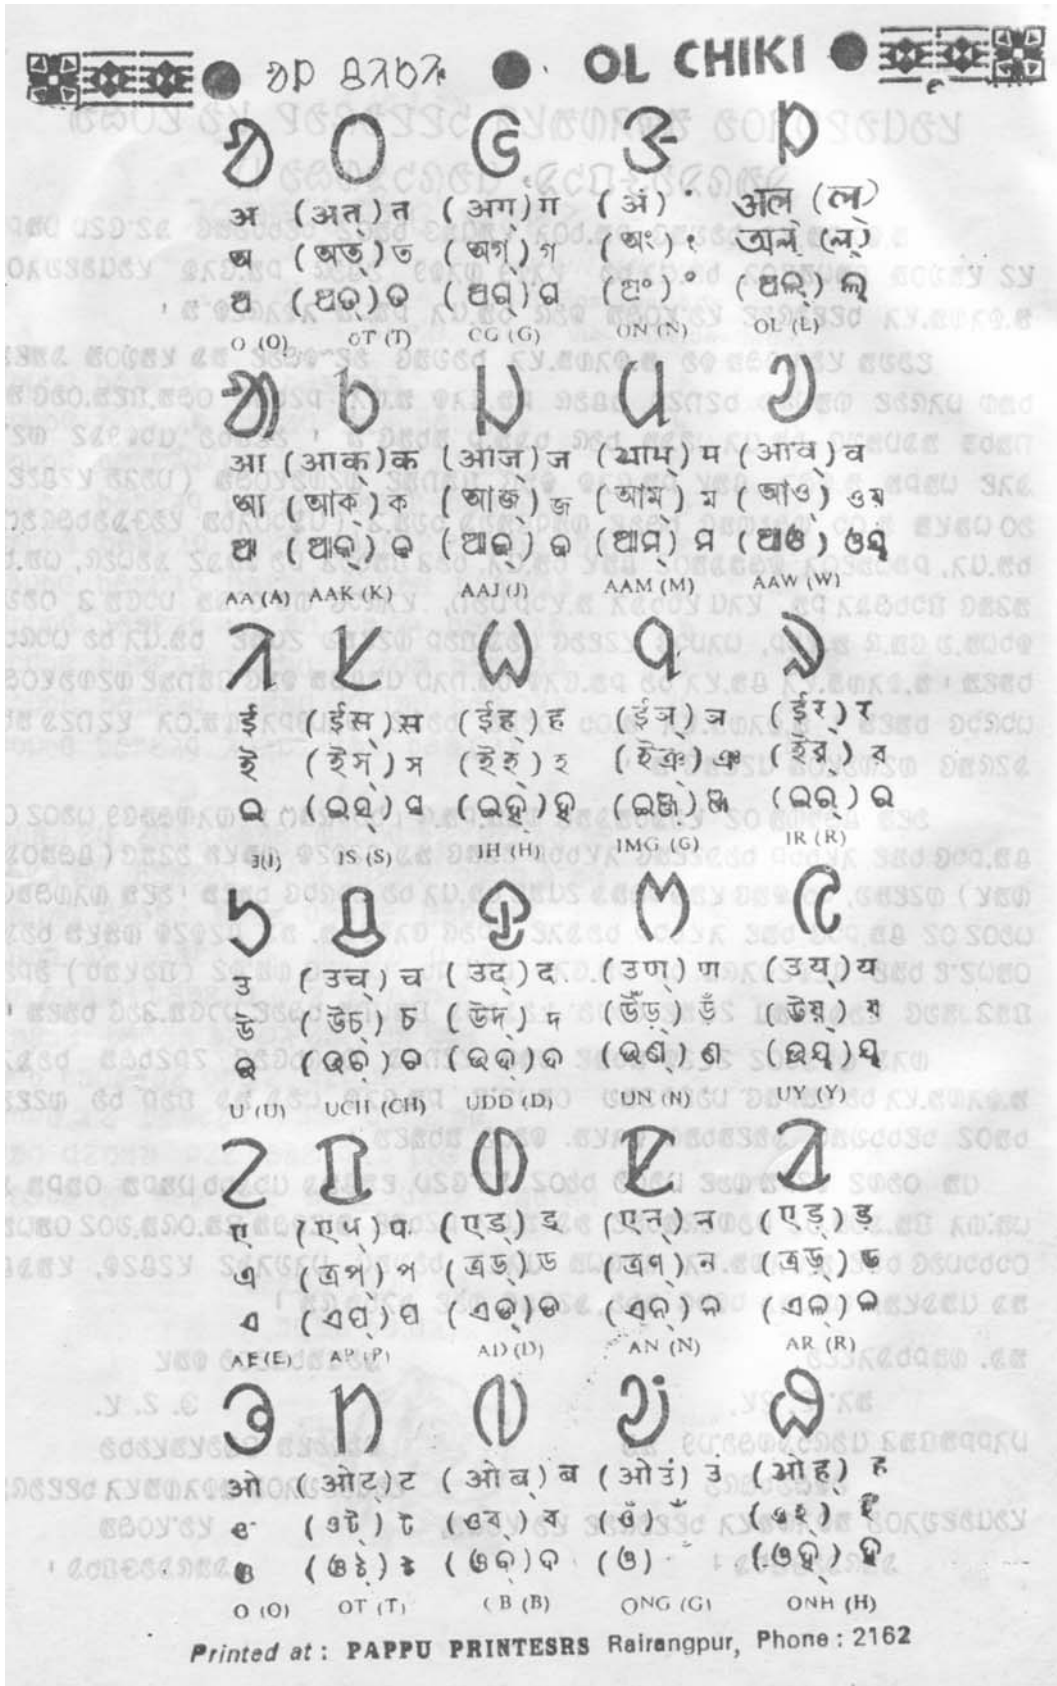 ᱚᱞ ᱪᱤᱠᱤ OL CHIKI
ᱚ ᱛ ᱜ ᱝ ᱞ
अ (अत्) त (अग्) ग (अं) ं अल (ल्)
অ (অত্) ত (অগ্) গ (অং) ং অল্ (ল্)
ଅ (ଅତ୍) ତ (ଅଗ୍) ଗ (ଅଂ) ଂ (ଅଲ୍) ଲ୍
O (O) OT (T) CG (G) ON (N) OL (L)
ᱟ ᱠ ᱡ ᱢ ᱣ
आ (आक्) क (आज्) ज (आम्) म (आव्) व
আ (আক্) ক (আজ্) জ (আম্) ম (আও্) ওয়
ଆ (ଆକ୍) କ (ଆଜ୍) ଜ (ଆମ୍) ମ (ଆଓ) ଓୟ୍
AA (A) AAK (K) AAJ (J) AAM (M) AAW (W)
ᱤ ᱥ ᱦ ᱧ ᱨ
ई (ईस्) स (ईह्) ह (ईञ्) ञ (ईर्) र
ই (ইস্) স (ইহ্) হ (ইঞ্) ঞ (ইর্) র
ଇ (ଇସ୍) ସ (ଇହ୍) ହ (ଇଞ୍) ଞ (ଇର୍) ର
3(I) IS (S) IH (H) IMG (G) IR (R)
ᱩ ᱪ ᱫ ᱬ ᱭ
उ (उच्) च (उद्) द (उण्) ण (उय्) य
উ (উচ্) চ (উদ্) দ (উঁড়্) ড়ঁ (উয়্) য়
ଉ (ଉଚ୍) ଚ (ଉଦ୍) ଦ (ଉଣ୍) ଣ (ଉୟ୍) ୟ୍
U (U) UCH (CH) UDD (D) UN (N) UY (Y)
ᱮ ᱯ ᱰ ᱱ ᱲ
ए (एप्) प (एड्) ड (एन्) न (एड़्) ड़
এ (এপ্) প (এড্) ড (এন্) ন (এড়্) ড়
ଏ (ଏପ୍) ପ (ଏଡ୍) ଡ (ଏନ୍) ନ (ଏଳ୍) ଳ
AE (E) AP (P) AD (D) AN (N) AR (R)
ᱳ ᱴ ᱵ ᱶ ᱷ
ओ (ओट्) ट (ओब्) ब (ओउं) उं (ओह्) ह
ও (ওট্) ট (ওব্) ব (ওঁ) ঁ (ওহ্) হ
ଓ (ଓଟ୍) ଟ (ଓବ୍) ବ (ଓଁ) (ଓହ୍) ହ୍
O (O) OT (T) (B (B) ONG (G) ONH (H)
Printed at : PAPPU PRINTESRS Rairangpur, Phone : 2162